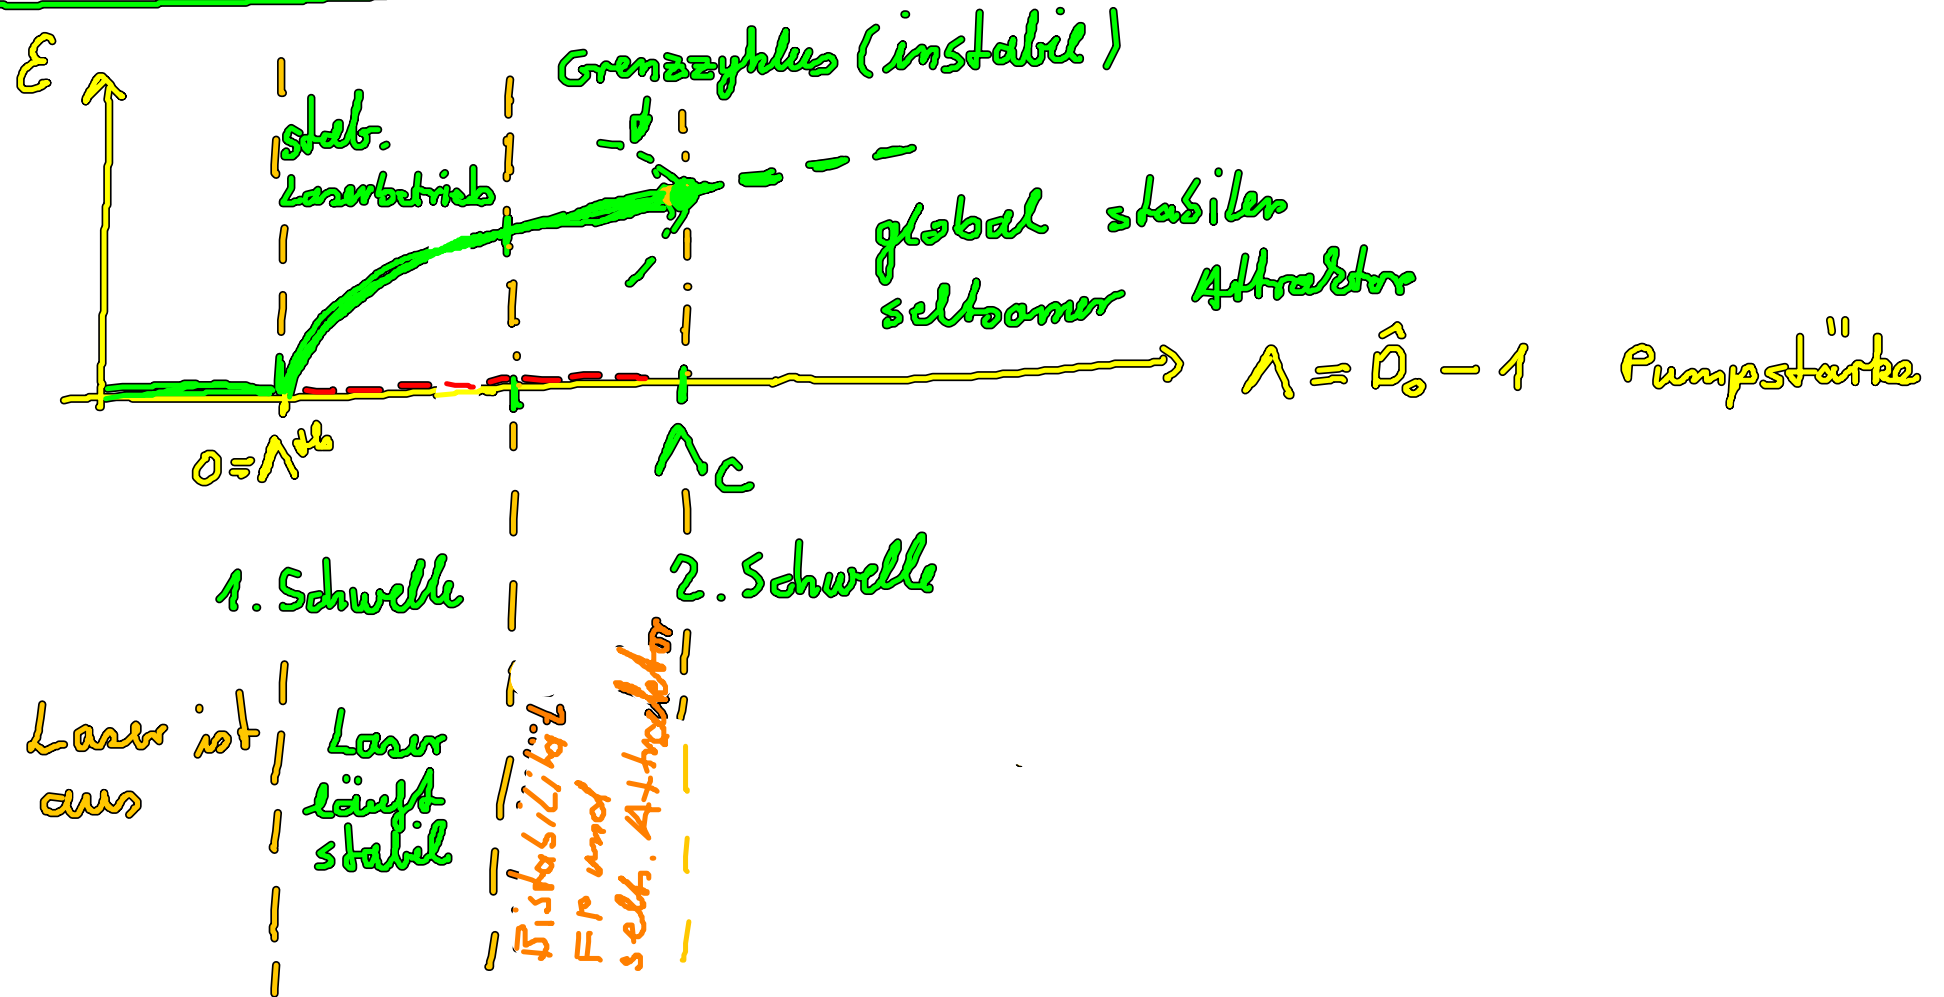 ε
Grenzzyklus (instabil)
stab.
Laserbetrieb
global stabiler
seltsamer Attraktor
Λ = D̂₀ - 1 Pumpstärke
0 = Λᵗʰ
Λ_C
1. Schwelle
2. Schwelle
Laser ist
aus
Laser
läuft
stabil
Bistabilität
FP und
selts. Attraktor